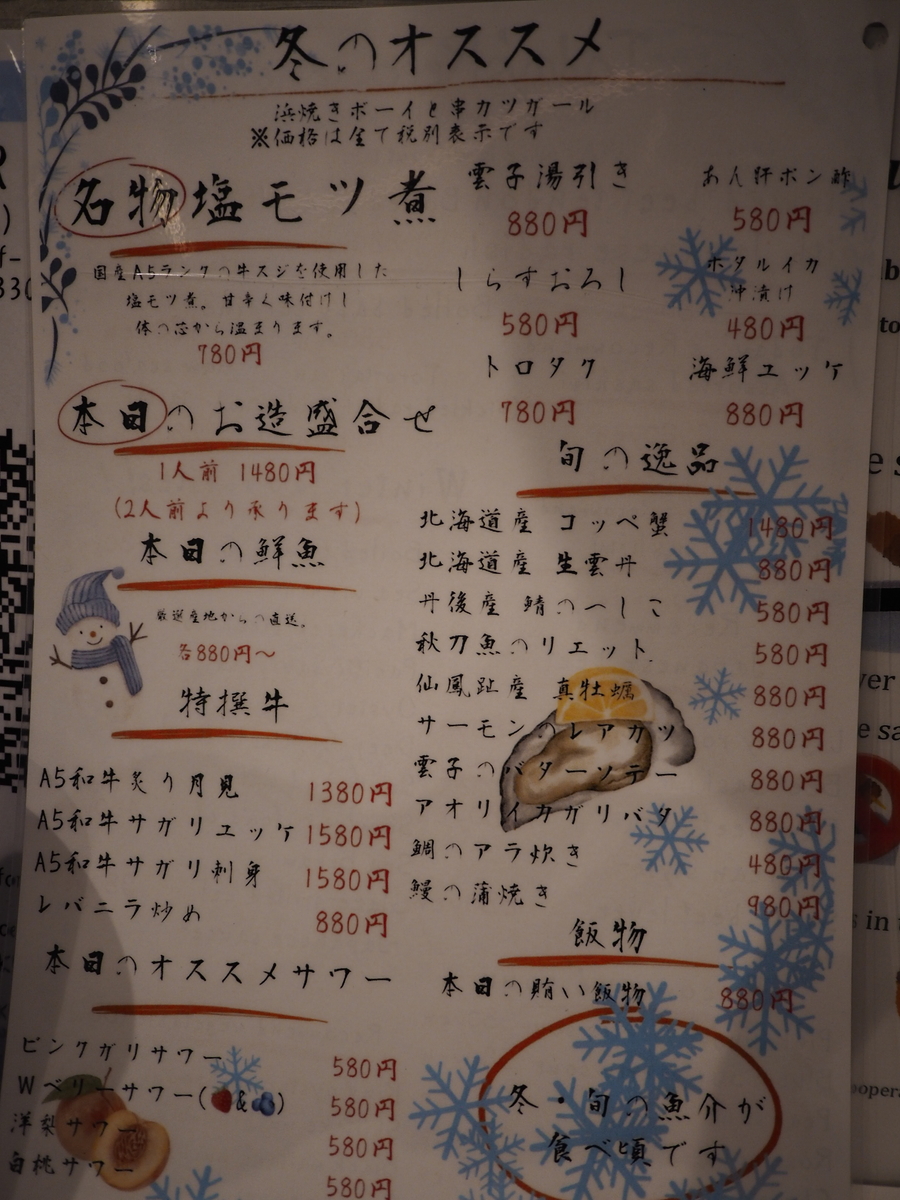 冬のオススメ
浜焼きボーイと串カツガール
※価格は全て税別表示です
名物塩モツ煮
国産A5ランクの牛スジを使用した
塩モツ煮。甘辛く味付けし
体の芯から温まります。
780円
雲子湯引き
880円
あん肝ポン酢
580円
しらすおろし
580円
ホタルイカ
沖漬け
480円
トロタク
780円
海鮮ユッケ
880円
本日のお造盛合せ
1人前 1480円
(2人前より承ります)
本日の鮮魚
厳選産地からの直送。
各880円〜
特撰牛
A5和牛炙り月見 1380円
A5和牛サガリユッケ 1580円
A5和牛サガリ刺身 1580円
レバニラ炒め 880円
本日のオススメサワー
ピンクガリサワー 580円
Wベリーサワー(&) 580円
洋梨サワー 580円
白桃サワー 580円
旬の逸品
北海道産 コッペ蟹 1480円
北海道産 生雲丹 880円
丹後産 鯖のへしこ 580円
秋刀魚のリエット 580円
仙鳳趾産 真牡蠣 880円
サーモンのレアカツ 880円
雲子のバターソテー 880円
アオリイカガリバタ 880円
鯛のアラ炊き 480円
鰻の蒲焼き 980円
飯物
本日の賄い飯物 880円
冬・旬の魚介が
食べ頃です